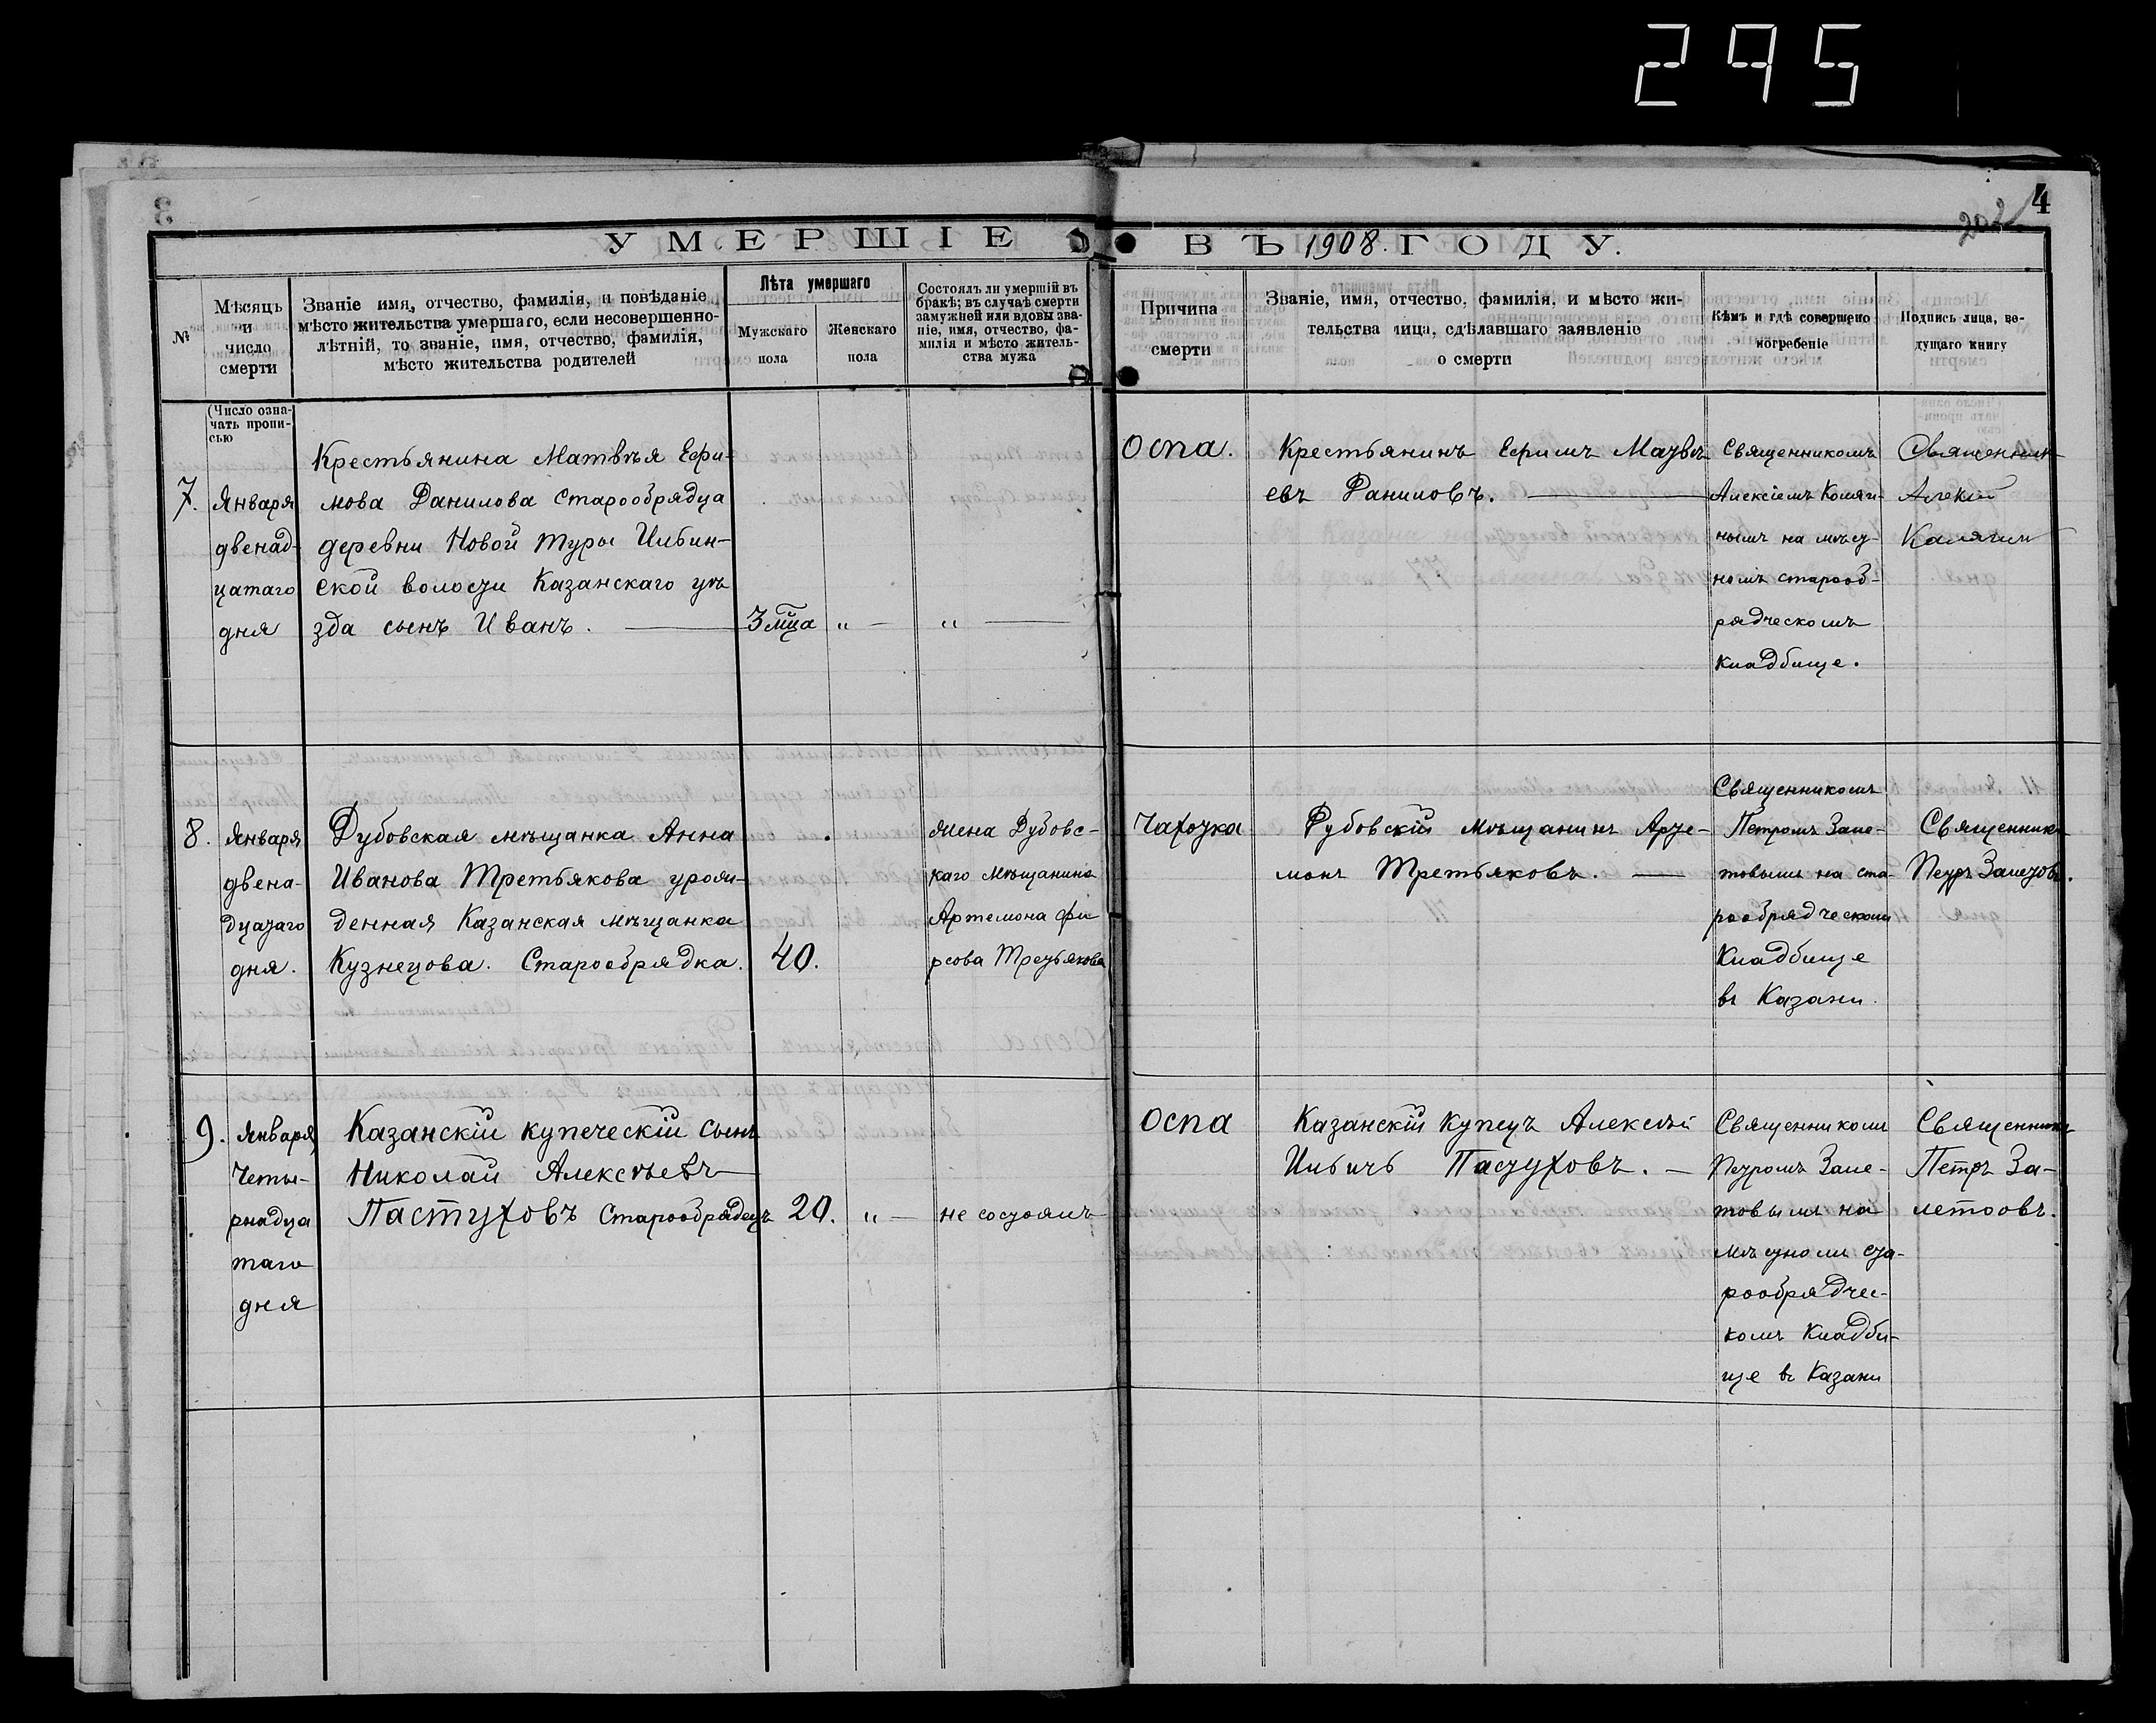 295
4
202
УМЕРШІЕ ВЪ 1908. ГОДУ.
№
Мѣсяцъ
и
число
смерти
Званіе имя, отчество, фамилія, и повѣданіе,
мѣсто жительства умершаго, если несовершенно-
лѣтній, то званіе, имя, отчество, фамилія,
мѣсто жительства родителей
Лѣта умершаго
Мужскаго
пола
Женскаго
пола
Состоялъ ли умершій въ
бракѣ; въ случаѣ смерти
замужней или вдовы зва-
ніе, имя, отчество, фа-
милія и мѣсто житель-
ства мужа
Причина
смерти
Званіе, имя, отчество, фамилія, и мѣсто жи-
тельства лица, сдѣлавшаго заявленіе
о смерти
Кѣмъ и гдѣ совершено
погребеніе
Подпись лица, ве-
дущаго книгу
(Число озна-
чать пропи-
сью
7.
Января
двенад-
цатаго
дня
Крестьянина Матвѣя Ефи-
мова Данилова старообрядца
деревни Новой Туры Ильин-
ской волости Казанскаго уѣ
зда сынъ Иванъ.
3 мца
„ —
„
Оспа.
Крестьянинъ Ефимъ Матвѣ
евъ Даниловъ.
Священникомъ
Алексіемъ Коляги-
нымъ на мѣст-
номъ старооб-
рядческомъ
кладбище.
Священник
Алексій
Калягин
8.
Января
двена-
дцатаго
дня.
Дубовская мѣщанка Анна
Иванова Третьякова урож-
денная Казанская мѣщанка
Кузнецова. Старообрядка.
40.
жена Дубовс-
каго мѣщанина
Артемона Фи
рсова Третьякова
Чахотка
Дубовскій мѣщанинъ Арте-
монъ Третьяковъ.
Священникомъ
Петромъ Зале-
товымъ на ста-
рообрядческом
Кладбище
въ Казани.
Священникъ
Петръ Залетовъ.
9.
Января
Четы-
рнадца
таго
дня
Казанскій купеческій сынъ
Николай Алексѣевъ
Пастуховъ Старообрядецъ
20.
„ —
не состоялъ
Оспа
Казанскій Купецъ Алексѣй
Ильичъ Пастуховъ.
Священникомъ
Петромъ Зале-
товымъ на
мѣстномъ ста-
рообрядчес-
комъ Кладби-
ще въ Казани
Священникъ
Петръ За-
летовъ.